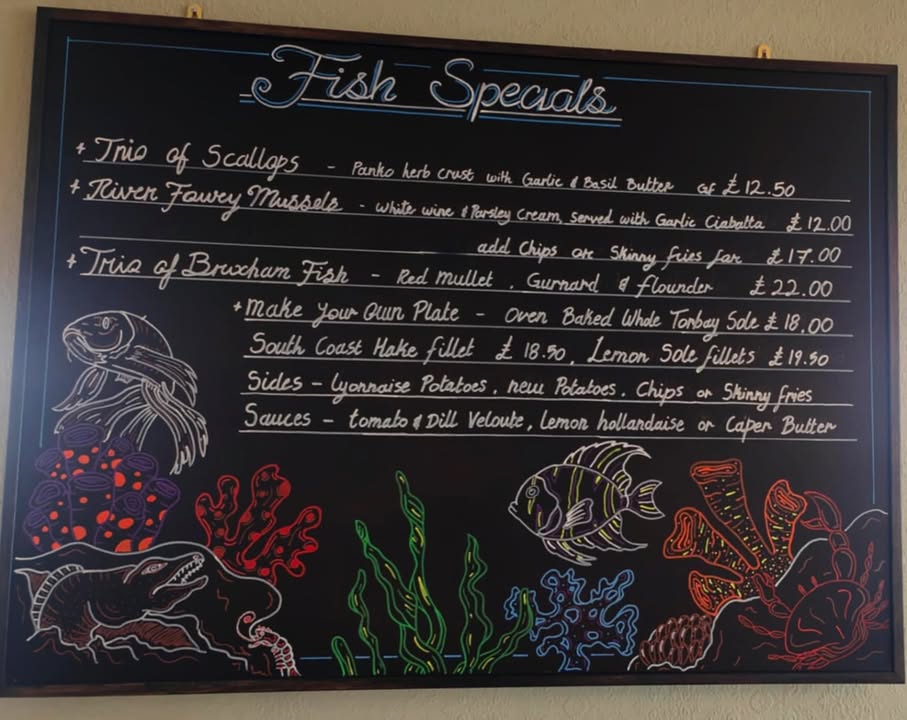 Fish Specials
+ Trio of Scallops - Panko herb crust with Garlic & Basil Butter GF £12.50
+ River Fowey Mussels - White wine & Parsley Cream, served with Garlic Ciabatta £12.00
add Chips or Skinny fries for £17.00
+ Trio of Brixham Fish - Red Mullet, Gurnard & flounder £22.00
+ Make Your Own Plate - Oven Baked Whole Torbay Sole £18.00
South Coast Hake fillet £18.50, Lemon Sole fillets £19.50
Sides - Lyonnaise Potatoes, new Potatoes, Chips or Skinny fries
Sauces - tomato & Dill Veloute, Lemon hollandaise or Caper Butter